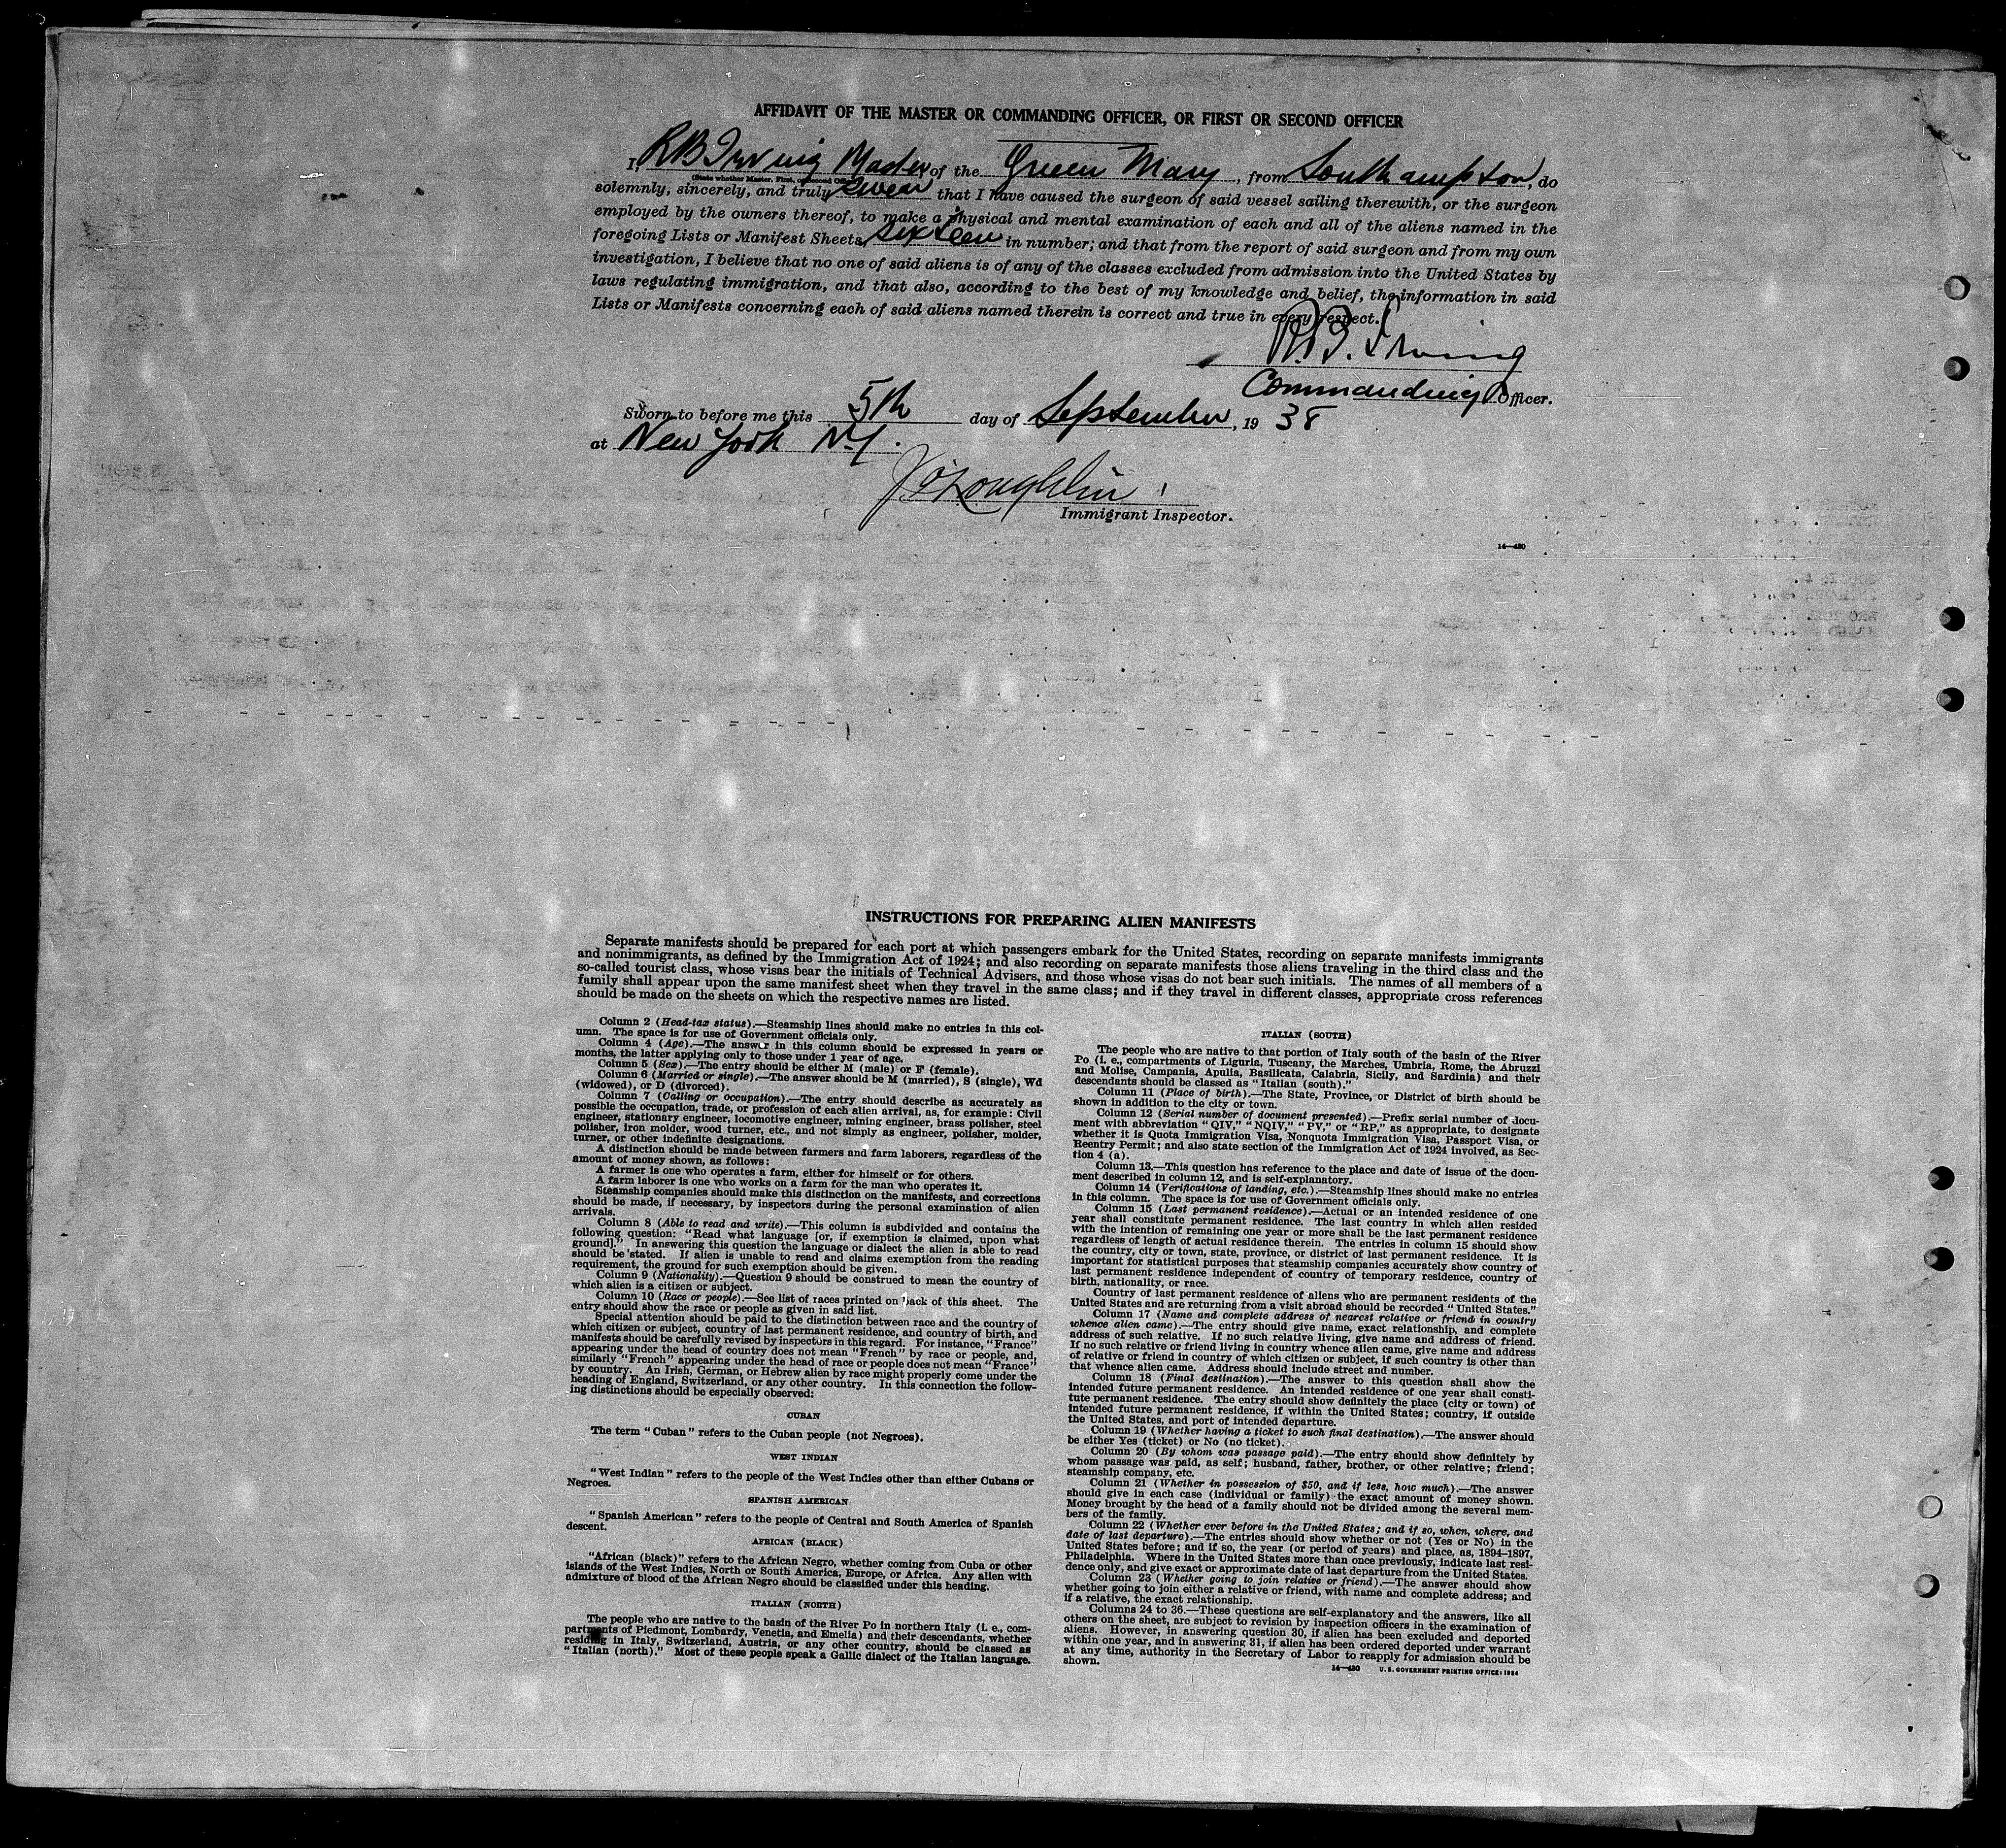 AFFIDAVIT OF THE MASTER OR COMMANDING OFFICER, OR FIRST OR SECOND OFFICER
I, R B Irving Master of the Queen Mary, from Southampton, do
(State whether Master, First, or Second Officer)
solemnly, sincerely, and truly swear that I have caused the surgeon of said vessel sailing therewith, or the surgeon
employed by the owners thereof, to make a physical and mental examination of each and all of the aliens named in the
foregoing Lists or Manifest Sheets, sixteen in number; and that from the report of said surgeon and from my own
investigation, I believe that no one of said aliens is of any of the classes excluded from admission into the United States by
laws regulating immigration, and that also, according to the best of my knowledge and belief, the information in said
Lists or Manifests concerning each of said aliens named therein is correct and true in every respect.
R.B. Irving
Commanding Officer.
Sworn to before me this 5th day of September, 19 38
at New York N.Y.
J O'Loughlin
Immigrant Inspector.
14—430
INSTRUCTIONS FOR PREPARING ALIEN MANIFESTS
Separate manifests should be prepared for each port at which passengers embark for the United States, recording on separate manifests immigrants
and nonimmigrants, as defined by the Immigration Act of 1924; and also recording on separate manifests those aliens traveling in the third class and the
so-called tourist class, whose visas bear the initials of Technical Advisers, and those whose visas do not bear such initials. The names of all members of a
family shall appear upon the same manifest sheet when they travel in the same class; and if they travel in different classes, appropriate cross references
should be made on the sheets on which the respective names are listed.
Column 2 (Head-tax status).—Steamship lines should make no entries in this col-
umn. The space is for use of Government officials only.
Column 4 (Age).—The answer in this column should be expressed in years or
months, the latter applying only to those under 1 year of age.
Column 5 (Sex).—The entry should be either M (male) or F (female).
Column 6 (Married or single).—The answer should be M (married), S (single), Wd
(widowed), or D (divorced).
Column 7 (Calling or occupation).—The entry should describe as accurately as
possible the occupation, trade, or profession of each alien arrival, as, for example: Civil
engineer, stationary engineer, locomotive engineer, mining engineer, brass polisher, steel
polisher, iron molder, wood turner, etc., and not simply as engineer, polisher, molder,
turner, or other indefinite designations.
A distinction should be made between farmers and farm laborers, regardless of the
amount of money shown, as follows:
A farmer is one who operates a farm, either for himself or for others.
A farm laborer is one who works on a farm for the man who operates it.
Steamship companies should make this distinction on the manifests, and corrections
should be made, if necessary, by inspectors during the personal examination of alien
arrivals.
Column 8 (Able to read and write).—This column is subdivided and contains the
following question: "Read what language [or, if exemption is claimed, upon what
ground]." In answering this question the language or dialect the alien is able to read
should be stated. If alien is unable to read and claims exemption from the reading
requirement, the ground for such exemption should be given.
Column 9 (Nationality).—Question 9 should be construed to mean the country of
which alien is a citizen or subject.
Column 10 (Race or people).—See list of races printed on back of this sheet. The
entry should show the race or people as given in said list.
Special attention should be paid to the distinction between race and the country of
which citizen or subject, country of last permanent residence, and country of birth, and
manifests should be carefully revised by inspectors in this regard. For instance, "France"
appearing under the head of country does not mean "French" by race or people, and,
similarly "French" appearing under the head of race or people does not mean "France"
by country. An Irish, German, or Hebrew alien by race might properly come under the
heading of England, Switzerland, or any other country. In this connection the follow-
ing distinctions should be especially observed:
CUBAN
The term "Cuban" refers to the Cuban people (not Negroes).
WEST INDIAN
"West Indian" refers to the people of the West Indies other than either Cubans or
Negroes.
SPANISH AMERICAN
"Spanish American" refers to the people of Central and South America of Spanish
descent.
AFRICAN (BLACK)
"African (black)" refers to the African Negro, whether coming from Cuba or other
islands of the West Indies, North or South America, Europe, or Africa. Any alien with
admixture of blood of the African Negro should be classified under this heading.
ITALIAN (NORTH)
The people who are native to the basin of the River Po in northern Italy (i. e., com-
partments of Piedmont, Lombardy, Venetia, and Emelia) and their descendants, whether
residing in Italy, Switzerland, Austria, or any other country, should be classed as
"Italian (north)." Most of these people speak a Gallic dialect of the Italian language.
ITALIAN (SOUTH)
The people who are native to that portion of Italy south of the basin of the River
Po (i. e., compartments of Liguria, Tuscany, the Marches, Umbria, Rome, the Abruzzi
and Molise, Campania, Apulia, Basilicata, Calabria, Sicily, and Sardinia) and their
descendants should be classed as "Italian (south)."
Column 11 (Place of birth).—The State, Province, or District of birth should be
shown in addition to the city or town.
Column 12 (Serial number of document presented).—Prefix serial number of docu-
ment with abbreviation "QIV," "NQIV," "PV," or "RP," as appropriate, to designate
whether it is Quota Immigration Visa, Nonquota Immigration Visa, Passport Visa, or
Reentry Permit; and also state section of the Immigration Act of 1924 involved, as Sec-
tion 4 (a).
Column 13.—This question has reference to the place and date of issue of the docu-
ment described in column 12, and is self-explanatory.
Column 14 (Verifications of landing, etc.).—Steamship lines should make no entries
in this column. The space is for use of Government officials only.
Column 15 (Last permanent residence).—Actual or an intended residence of one
year shall constitute permanent residence. The last country in which alien resided
with the intention of remaining one year or more shall be the last permanent residence
regardless of length of actual residence therein. The entries in column 15 should show
the country, city or town, state, province, or district of last permanent residence. It is
important for statistical purposes that steamship companies accurately show country of
last permanent residence independent of country of temporary residence, country of
birth, nationality, or race.
Country of last permanent residence of aliens who are permanent residents of the
United States and are returning from a visit abroad should be recorded "United States."
Column 17 (Name and complete address of nearest relative or friend in country
whence alien came).—The entry should give name, exact relationship, and complete
address of such relative. If no such relative living, give name and address of friend.
If no such relative or friend living in country whence alien came, give name and address
of relative or friend in country of which citizen or subject, if such country is other than
that whence alien came. Address should include street and number.
Column 18 (Final destination).—The answer to this question shall show the
intended future permanent residence. An intended residence of one year shall consti-
tute permanent residence. The entry should show definitely the place (city or town) of
intended future permanent residence, if within the United States; country, if outside
the United States, and port of intended departure.
Column 19 (Whether having a ticket to such final destination).—The answer should
be either Yes (ticket) or No (no ticket).
Column 20 (By whom was passage paid).—The entry should show definitely by
whom passage was paid, as self; husband, father, brother, or other relative; friend;
steamship company, etc.
Column 21 (Whether in possession of $50, and if less, how much).—The answer
should give in each case (individual or family) the exact amount of money shown.
Money brought by the head of a family should not be divided among the several mem-
bers of the family.
Column 22 (Whether ever before in the United States; and if so, when, where, and
date of last departure).—The entries should show whether or not (Yes or No) in the
United States before; and if so, the year (or period of years) and place, as, 1894-1897,
Philadelphia. Where in the United States more than once previously, indicate last resi-
dence only, and give exact or approximate date of last departure from the United States.
Column 23 (Whether going to join relative or friend).—The answer should show
whether going to join either a relative or friend, with name and complete address; and
if a relative, the exact relationship.
Columns 24 to 36.—These questions are self-explanatory and the answers, like all
others on the sheet, are subject to revision by inspection officers in the examination of
aliens. However, in answering question 30, if alien has been excluded and deported
within one year, and in answering 31, if alien has been ordered deported under warrant
at any time, authority in the Secretary of Labor to reapply for admission should be
shown.
14—430 U. S. GOVERNMENT PRINTING OFFICE: 1934